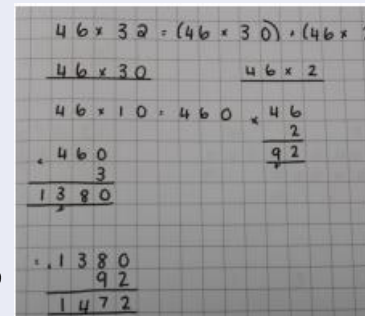 46 × 32 = (46 × 30) + (46 × 2
46 × 30
46 × 2
46 × 10 = 460
× 46
2
92
× 460
3
1380
= + 1380
92
1472